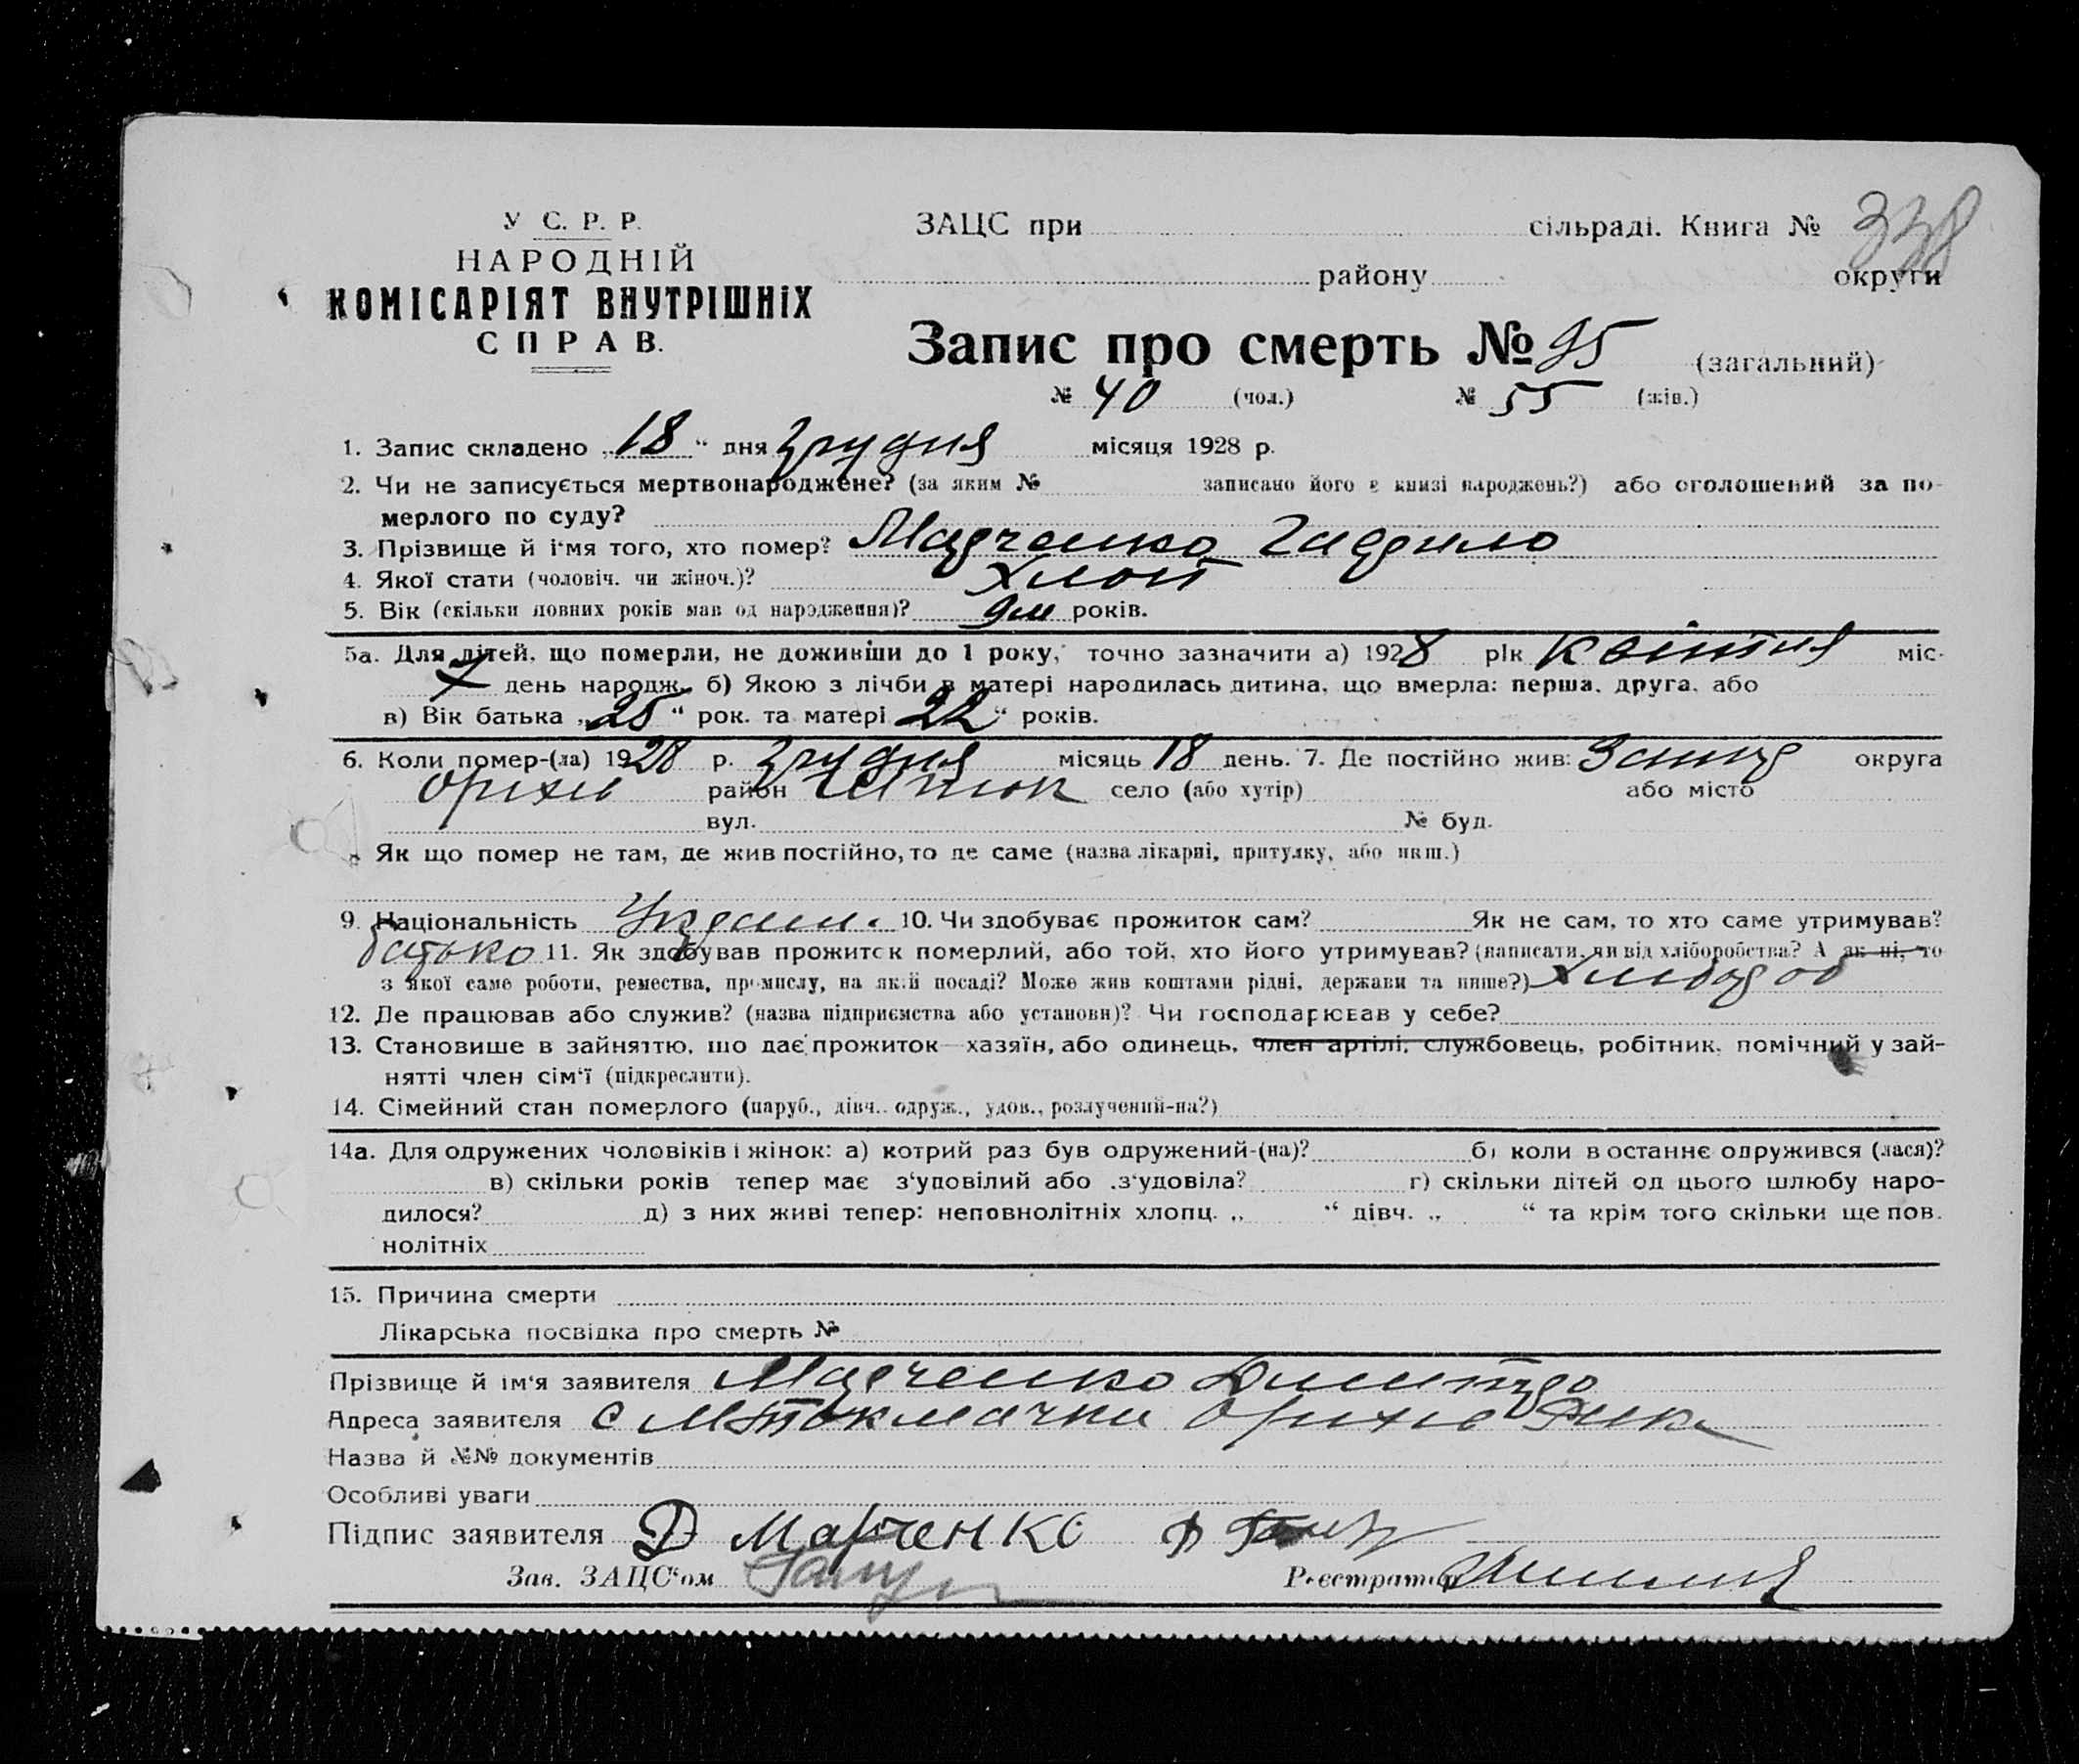 У С. Р. Р.
НАРОДНІЙ
КОМІСАРІЯТ ВНУТРІШНІХ
СПРАВ.
ЗАЦС при сільраді. Книга № 338
району округи
Запис про смерть № 95 (загальний)
№ 40 (чол.) № 55 (жів.)
1. Запис складено „18“ дня грудня місяця 1928 р.
2. Чи не записується мертвонароджене? (за яким № записано його в книзі народжень?) або оголошений за по-
мерлого по суду?
3. Прізвище й і'мя того, хто помер? Марченко Гаврило
4. Якої стати (чоловіч. чи жіноч.)? Хлоп
5. Вік (скільки повних років мав од народження)? 9м років.
5а. Для дітей, що померли, не доживши до 1 року, точно зазначити а) 1928 рік Квітня міс.
7 день народж. б) Якою з лічби в матері народилась дитина, що вмерла: перша, друга, або
в) Вік батька „25“ рок. та матері 22“ років.
6. Коли помер-(ла) 1928 р. грудня місяць 18 день. 7. Де постійно жив: округа
Оріхів район село (або хутір) або місто
вул. № буд.
Як що помер не там, де жив постійно, то де саме (назва лікарні, притулку, або инш.)
9. Національність Україн. 10. Чи здобуває прожиток сам? Як не сам, то хто саме утримував?
батько 11. Як здобував прожиток померлий, або той, хто його утримував? (написати, чи від хліборобства? А як ні, то
з якої саме роботи, ремества, промислу, на якій посаді? Може жив коштами рідні, держави та инше?) Хлібороб
12. Де працював або служив? (назва підприємства або установи)? Чи господарював у себе?
13. Становише в зайняттю, що дає прожиток—хазяїн, або одинець, член артілі, службовець, робітник, помічний у зай-
нятті член сім'ї (підкреслити).
14. Сімейний стан померлого (паруб., дівч., одруж., удов., розлучений-на?)
14а. Для одружених чоловіків і жінок: а) котрий раз був одружений-(на)? б) коли в останнє одружився (лася)?
в) скільки років тепер має з'уповілий або з'удовіла? г) скільки дітей од цього шлюбу наро-
дилося? д) з них живі тепер: неповнолітніх хлопц. „ “ дівч. „ “ та крім того скільки ще пов.
нолітніх
15. Причина смерти
Лікарська посвідка про смерть №
Прізвище й ім'я заявителя Марченко Дмитро
Адреса заявителя с М Токмачки Оріхів
Назва й №№ документів
Особливі уваги
Підпис заявителя Д Марченко
Зав. ЗАЦС'ом
Реєстратор